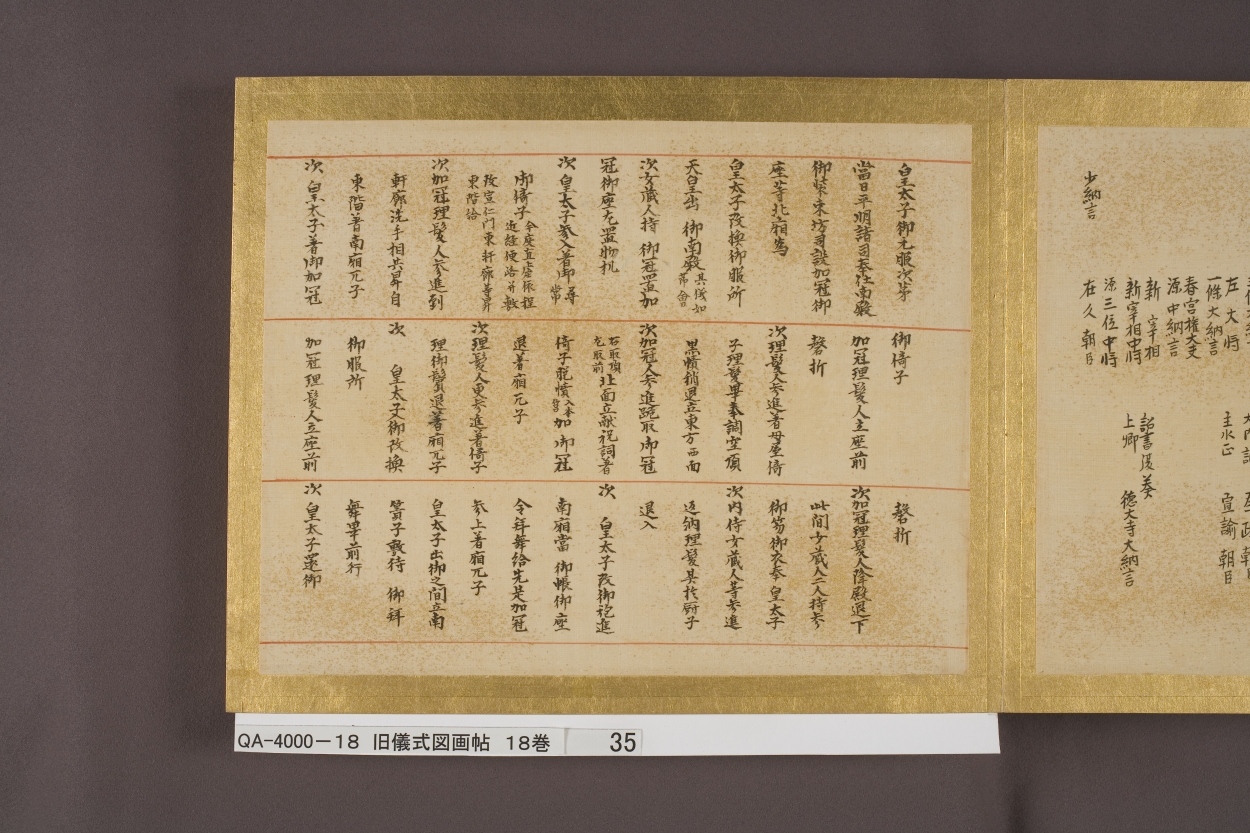 少納言
左大将
一條大納言
春宮權大夫
源中納言
新宰相
新宰相中将
源三位中将
在久朝臣
詔書覆奏
上卿 德大寺大納言
主水正 宣諭朝臣
皇太子御元服次第
當日平明諸司奉仕南殿
御装束坊司設加冠御
座等北廂為
皇太子改換御服所
天皇出御南殿其儀如常會
次女蔵人持御冠置加
冠御座左置物机
次皇太子参入著御
御倚子
改宣仁門東軒廊
東階
次加冠理髪人参進到
軒廊洗手相共昇自
東階著南廂兀子
次皇太子著御加冠
御倚子
加冠理髪人立座前
磬折
次理髪人参進著母屋倚
子理髪畢奉調空頂
黒幘稍退立東方西面
次加冠人参進跪取御冠
右取項左取前北面立献祝詞著
倚子脱幘加御冠
退著廂兀子
次理髪人更参進著倚子
理御鬢退著廂兀子
次皇太子御改換
御服所
加冠理髪人立座前
磬折
次加冠理髪人降殿退下
此間少蔵人二人持参
御笏御衣奉皇太子
次内侍女蔵人等参進
返納理髪具於厨子
退入
次皇太子改御袍進
南廂當御帳御座
令拜舞給先是加冠
参上著廂兀子
皇太子出御之間立南
簀子敷待御拜
舞畢前行
次皇太子還御
QA-4000-18 旧儀式図画帖 18巻 35